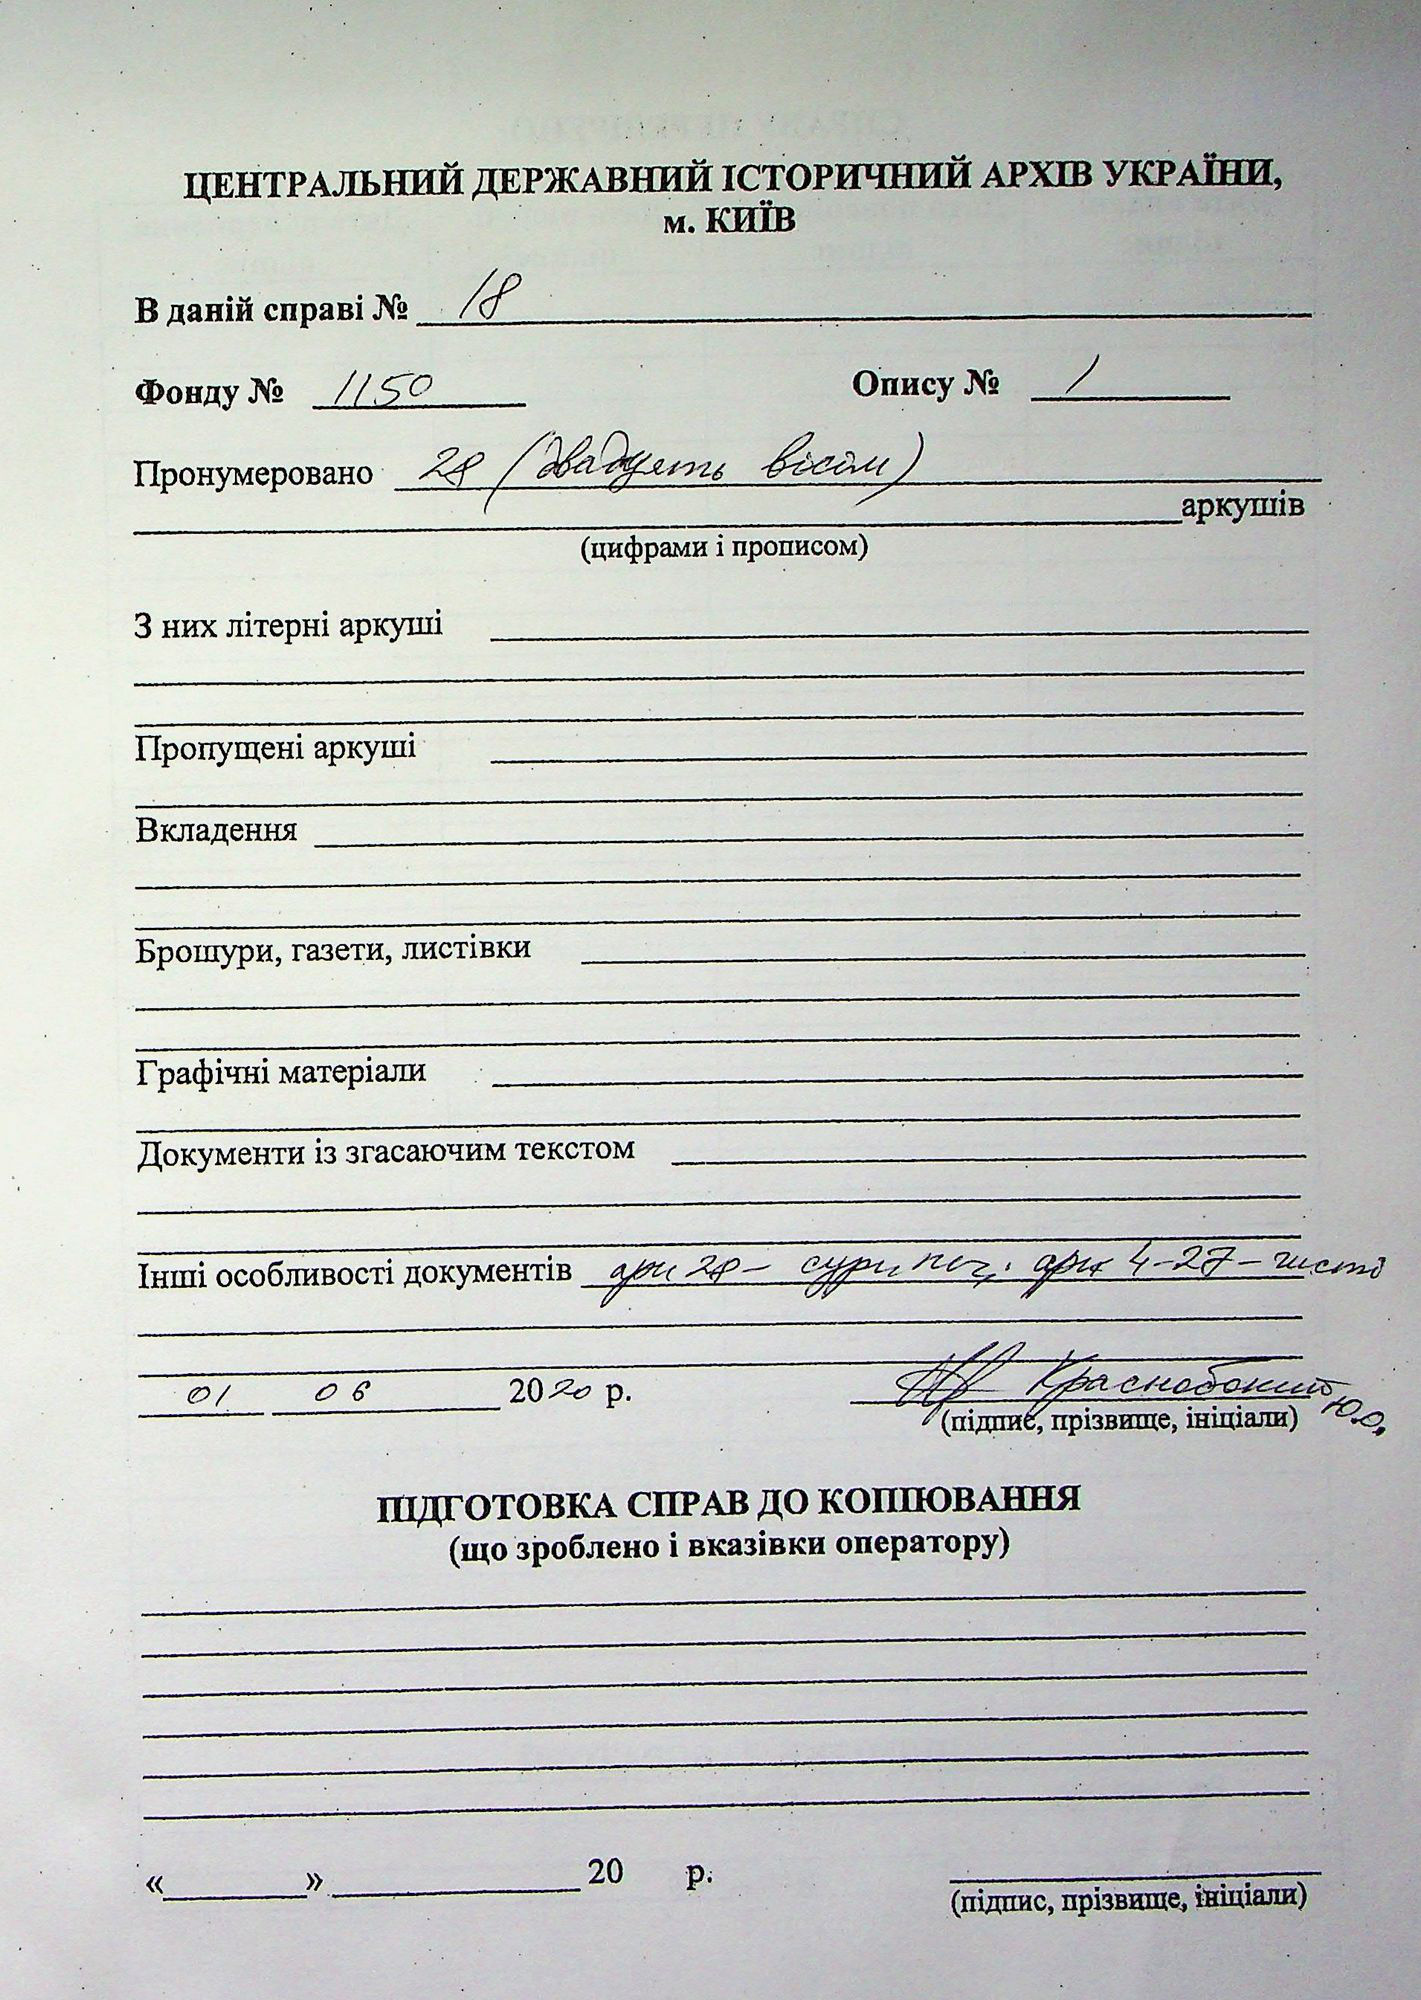 ЦЕНТРАЛЬНИЙ ДЕРЖАВНИЙ ІСТОРИЧНИЙ АРХІВ УКРАЇНИ,
м. КИЇВ
В даній справі № 18
Фонду № 1150 Опису № 1
Пронумеровано 28 (двадцять вісім)
аркушів
(цифрами і прописом)
З них літерні аркуші
Пропущені аркуші
Вкладення
Брошури, газети, листівки
Графічні матеріали
Документи із згасаючим текстом
Інші особливості документів арк 28 – сург. печ; арк 4-27 – чисті
01 06 2020 р. Краснобокий Ю.О.
(підпис, прізвище, ініціали)
ПІДГОТОВКА СПРАВ ДО КОПІЮВАННЯ
(що зроблено і вказівки оператору)
« » 20 р.
(підпис, прізвище, ініціали)